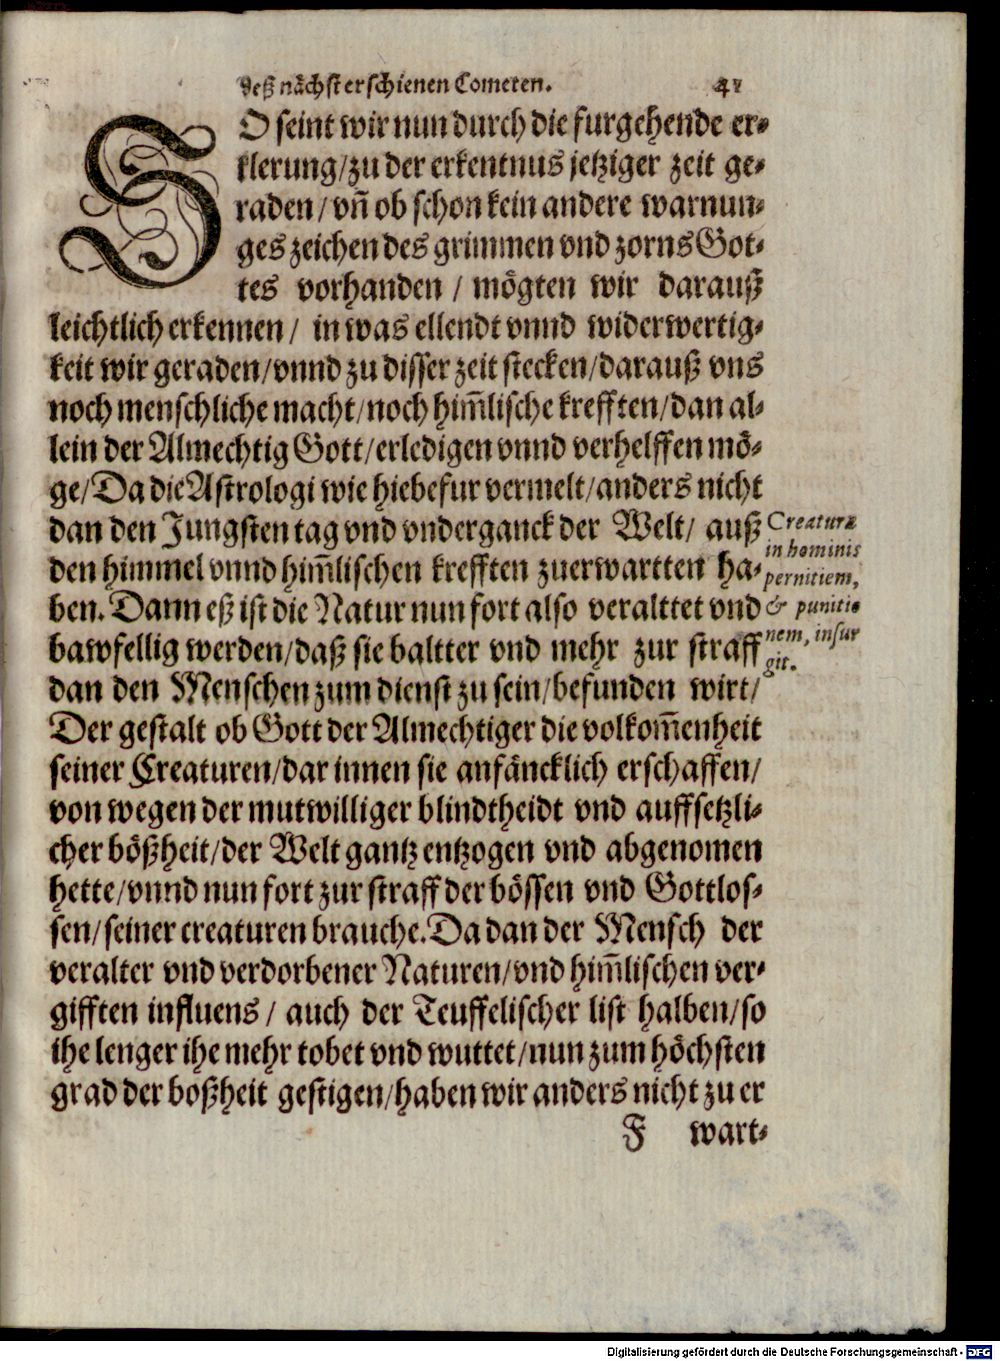 deß nächst erschienen Cometen. 41
SO seint wir nun durch die furgehende er-
klerung/zu der erkentnus jetziger zeit ge-
raden/ vñ ob schon kein andere warnun-
ges zeichen des grimmen vnd zorns Got-
tes vorhanden / mögten wir darauß
leichtlich erkennen/ in was ellendt vnnd widerwertig-
keit wir geraden/vnnd zu disser zeit stecken/darauß vns
noch menschliche macht/noch him̃lische krefften/dan al-
lein der Almechtig Gott/erledigen vnnd verhelffen mö-
ge/Da die Astrologi wie hiebefur vermelt/anders nicht
dan den Jungsten tag vnd vnderganck der Welt/ auß
den himmel vnnd him̃lischen krefften zuerwartten ha-
ben. Dann eß ist die Natur nun fort also veralttet vnd
bawfellig werden/daß sie baltter vnd mehr zur straff
dan den Menschen zum dienst zu sein/befunden wirt/
Der gestalt ob Gott der Almechtiger die volkom̃enheit
seiner Creaturen/dar innen sie anfäncklich erschaffen/
von wegen der mutwilliger blindtheidt vnd auffsetzli-
cher bößheit/der Welt gantz entzogen vnd abgenomen
hette/vnnd nun fort zur straff der bössen vnd Gottlos-
sen/seiner creaturen brauche. Da dan der Mensch der
veralter vnd verdorbener Naturen/vnd him̃lischen ver-
gifften influens / auch der Teuffelischer list halben/so
ihe lenger ihe mehr tobet vnd wuttet/nun zum höchsten
grad der boßheit gestigen/haben wir anders nicht zu er
F wart-
Creaturæ
in hominis
pernitiem,
& punitio
nem, insur
git.
Digitalisierung gefördert durch die Deutsche Forschungsgemeinschaft - DFG